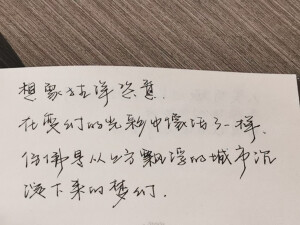 想象力汪洋恣意.
在变幻的光影中像活了一样.
仿佛是从上方飘浮的城市沉
淀下来的梦幻.